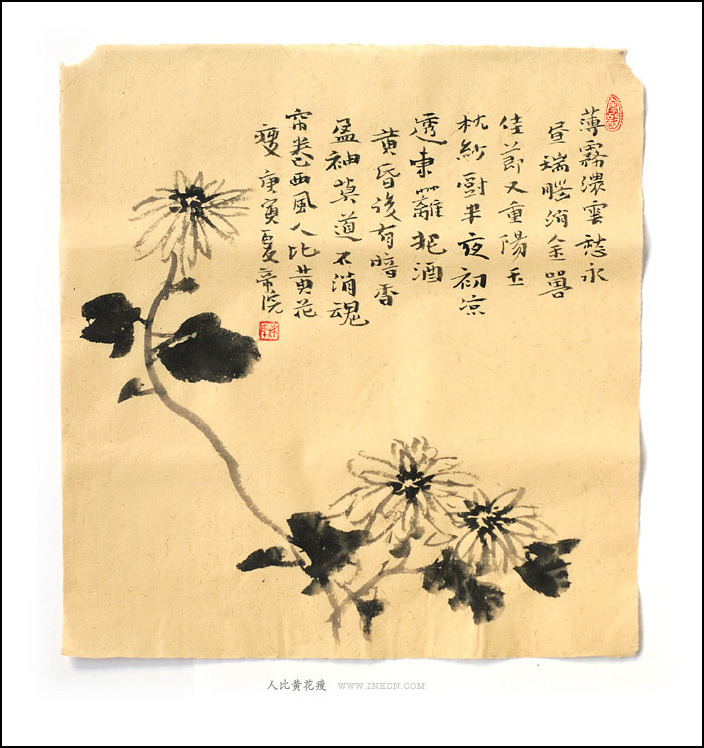 薄霧濃雲愁永
昼瑞腦消金嘼
佳節又重陽玉
枕紗廚半夜初凉
透東籬把酒
黄昏後有暗香
盈袖莫道不消魂
帘卷西風人比黄花
瘦 庚寅夏
人比黄花瘦 WWW.INKCN.COM